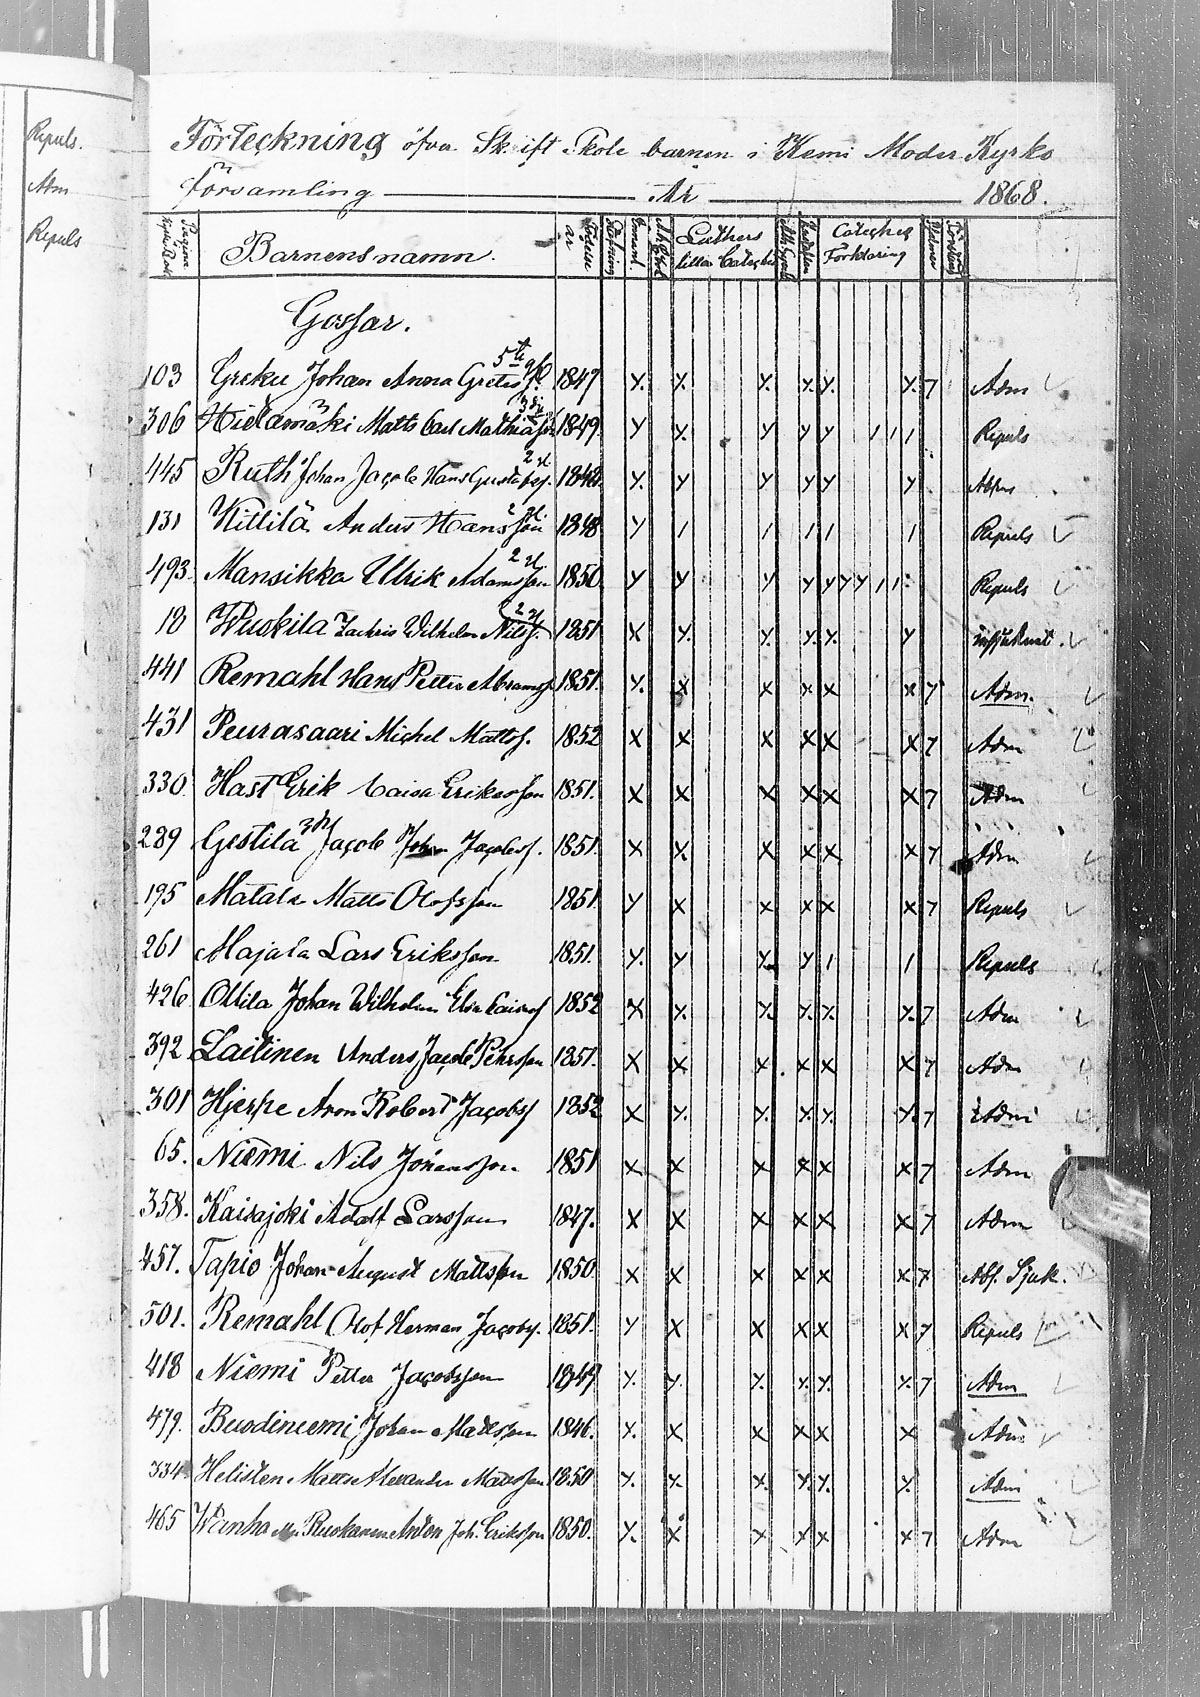 Repuls.
Adm
Repuls
Förteckning öfver Skrift Skole barnen i Kemi Moder Kyrko
församling År 1868.
Pagina Kyrko Bok Barnens namn. Födelse år Luthers lilla Cateches Cateches Förklaring
Gossar.
103 Greku Johan Anna Gretas 5te 1847 x x x x x x 7 Adm
306 Hietamäki Matts Carl Mathiasson 1849 y x y y y 1 1 1 Repuls
445 Ruth Johan Jacob Hans Gustafss. 1848 y y y y y y
131 Kittilä Anders Hansson 1848 y 1 1 1 1 1 Repuls
493. Mansikka Ulrik Adamsson 1850 y y y y y y y 1 1 Repuls
18 Ruokila Zachris Wilhelm Nilss. 1851 x y. y. y. y. y
441 Remahl Hans Petter Abramss. 1851. y. x x x x x 7 Adm.
431 Peurasaari Michel Mattss. 1852 x x x x x x 7 Adm
330. Hast Erik Caisa Eriksson 1851. x x x x x x 7 Adm
289 Gestila Jacob Johan Jacobss. 1851. x x x x x x 7 Adm
195 Matala Matts Olofsson 1851. y x x x x x 7 Repuls
261 Majala Lars Eriksson 1851. y. y y. y 1 1 Repuls
426 Ollila Johan Wilhelm Elsa Caisas. 1852 x x x x x x 7 Adm
392 Laitinen Anders Jacob Pehrsson 1851. x x x x x x 7 Adm
301 Hjerpe Aron Robert Jacobss 1852 x x x x x x 7 Adm
65. Niemi Nils Johansson 1851 x x x x x x 7 Adm
358. Kaisajoki Adolf Larsson 1847. x x x x x x 7 Adm
457. Tapio Johan August Mattsson 1850. x x x x x x 7 Abs. Sjuk.
501. Remahl Olof Herman Jacobss. 1851. y x x x x x 7 Repuls
418 Niemi Petter Jacobsson 1849 y. y. y. y. y. y. 7 Adm
479. Johan Mattsson 1846. x. x x x x x Adm
334. Helisten Matts Alexander Mattsson 1850 x. x. x. x. x. x. Adm
465 Wanha Ruokanen Anton Joh. Eriksson 1850. x. x x x x x 7 Adm